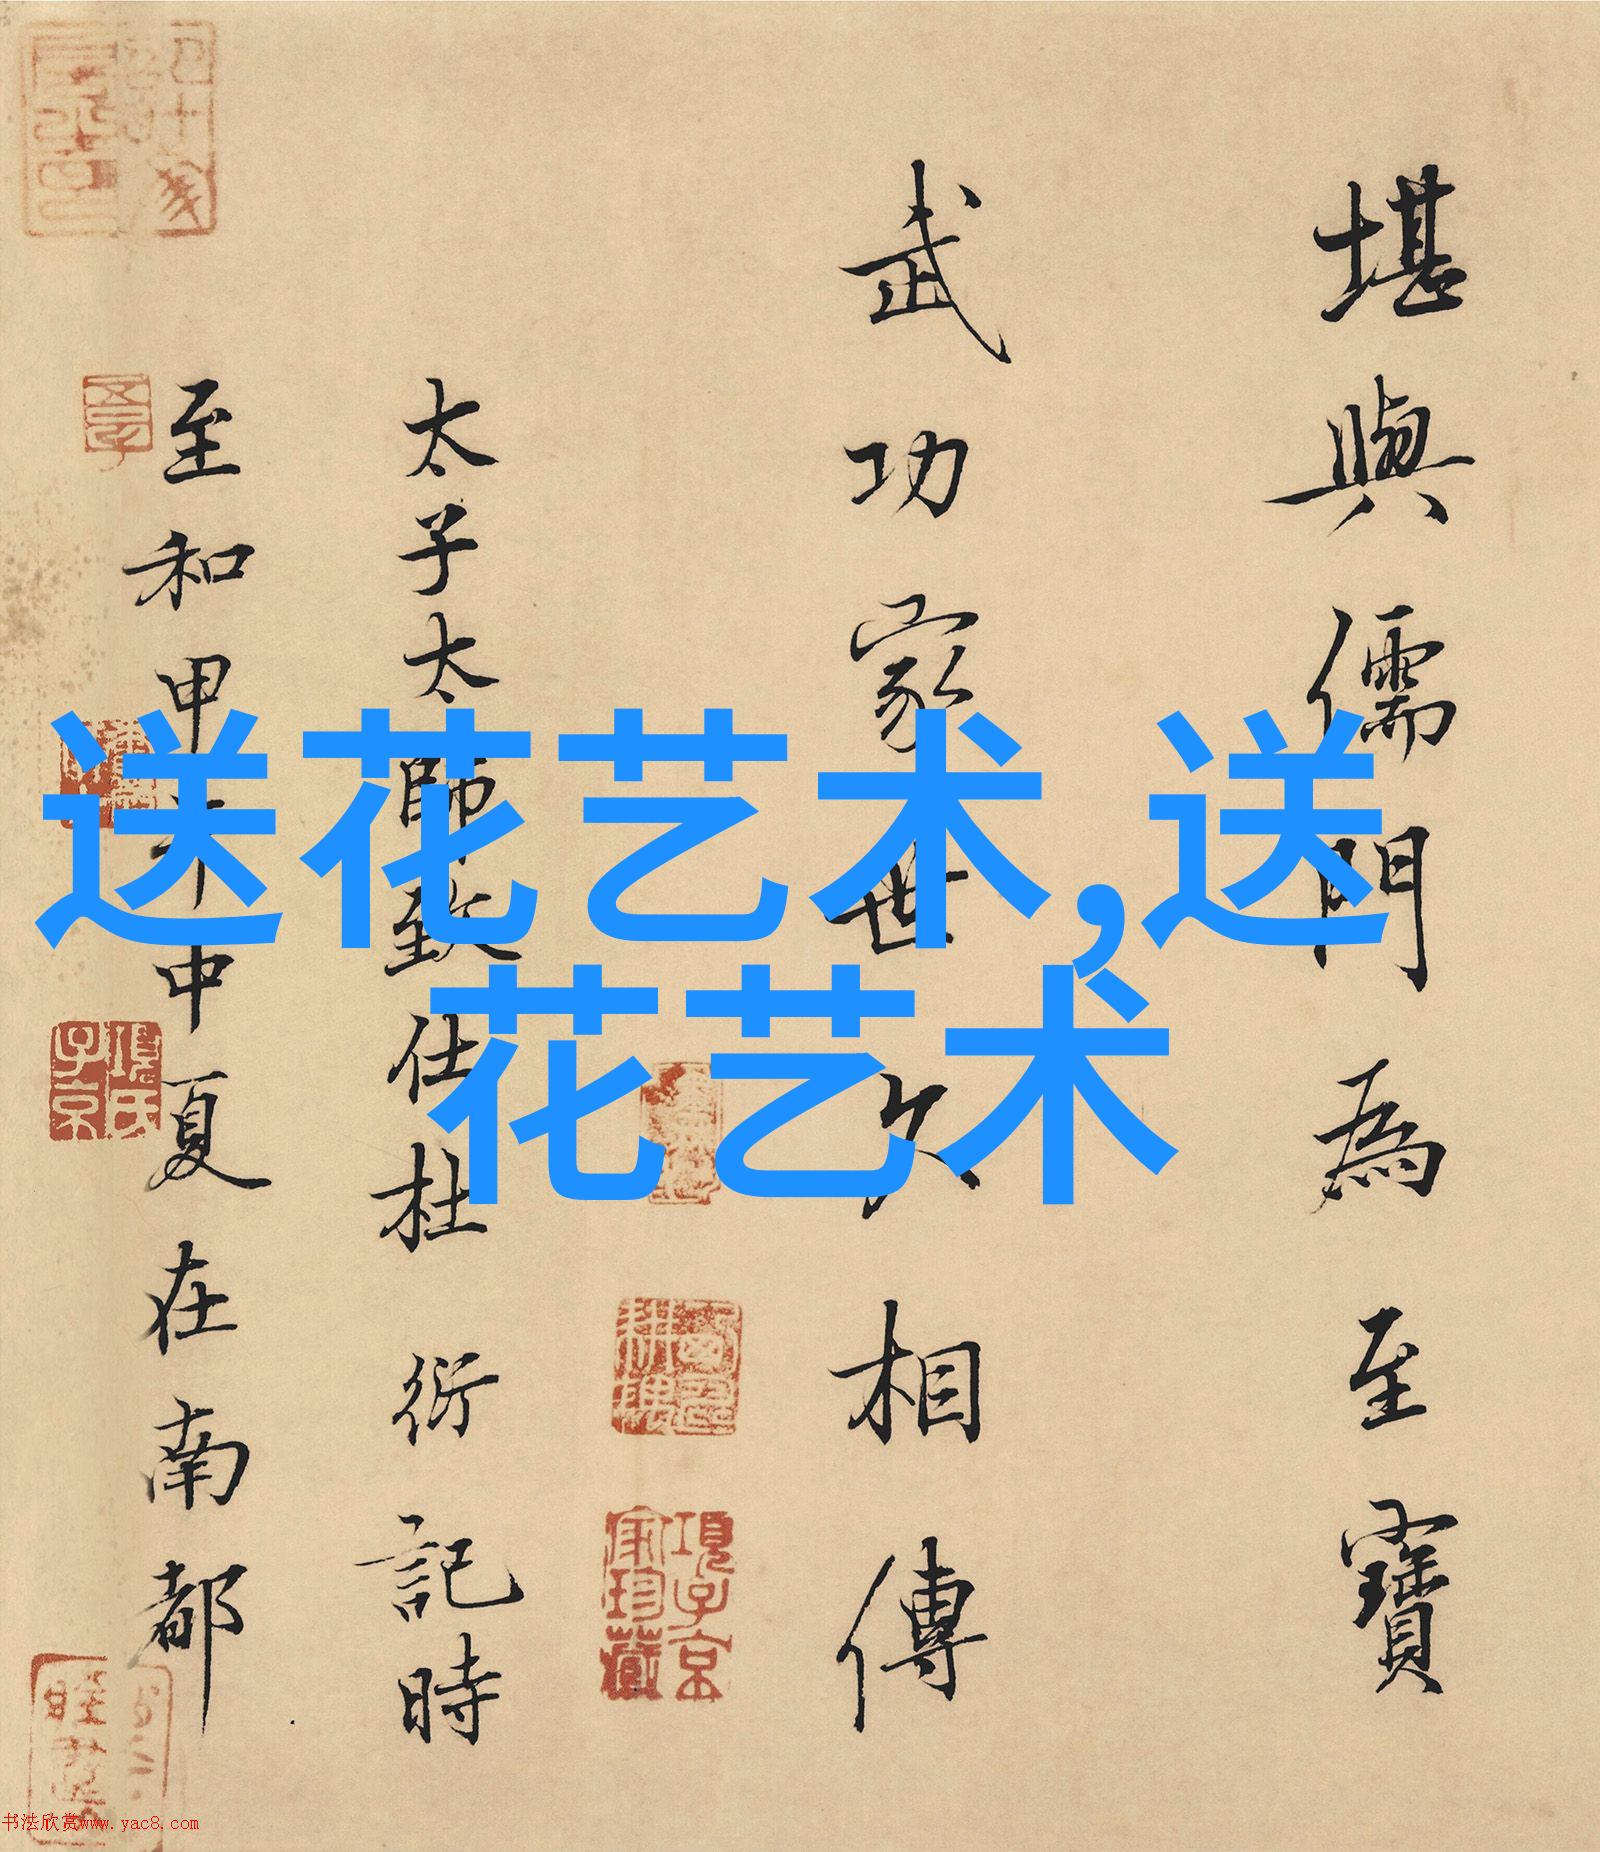 送花艺术,送
花艺术
堪與儒門為至寶
武功家世久相傳
太子太師致仕杜衍記時
至和甲午中夏在南都
項氏子京
項子京家珍藏
书法欣赏www.yac8.com